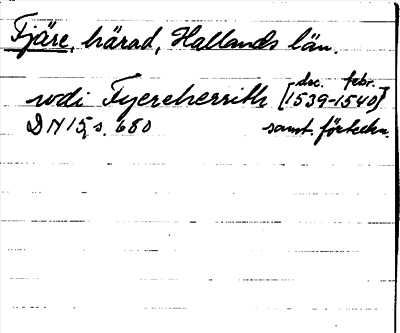 Fjäre, härad, Hallands län.
dec. febr.
wdi Fyereherrith [1539-1540]
DN 15, s. 680 samt. förteckn.